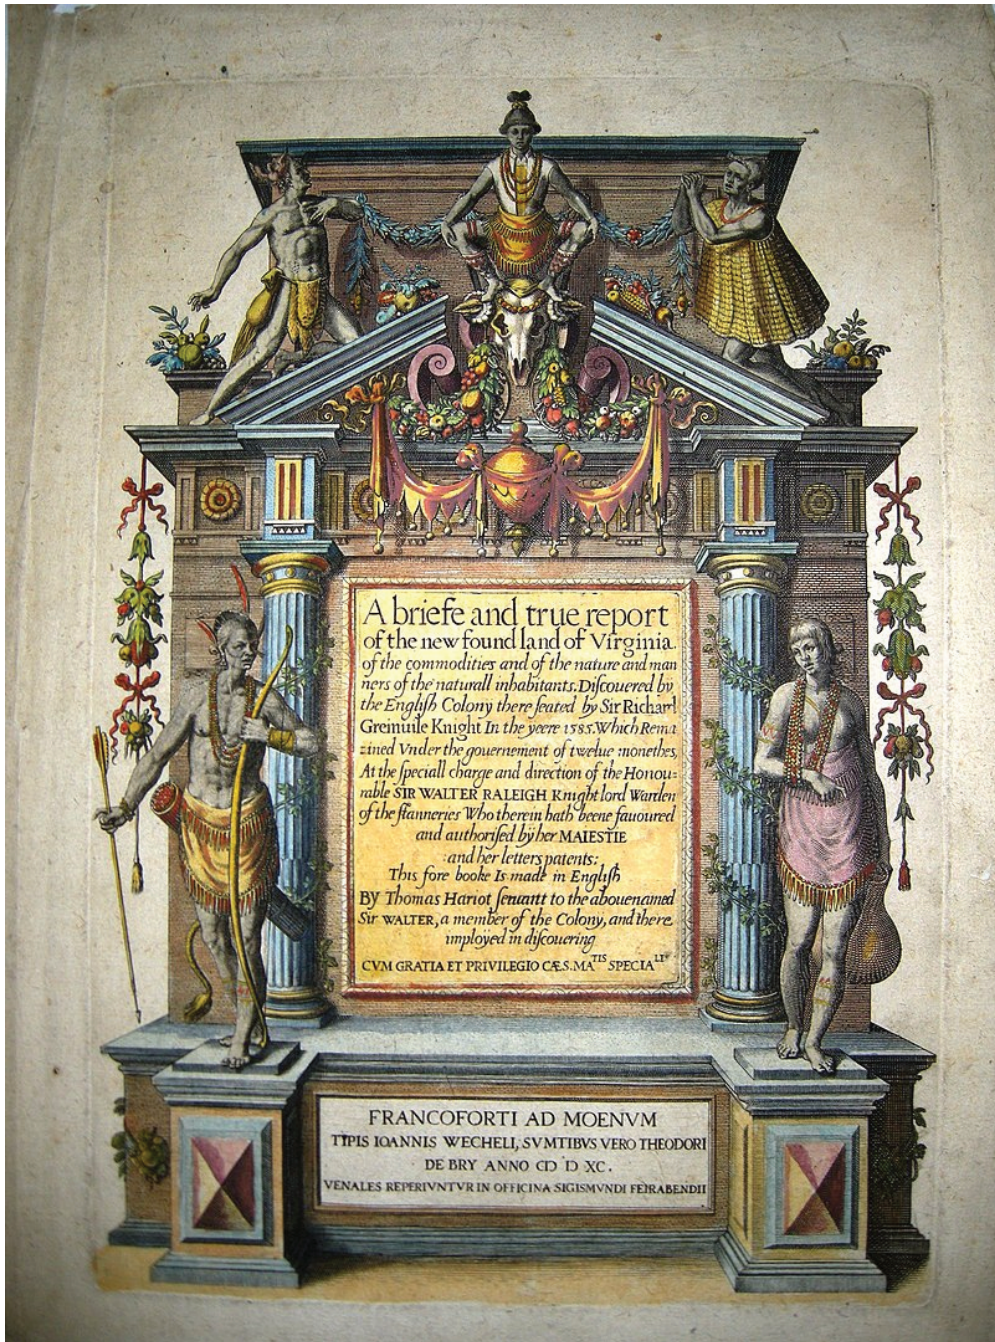 A briefe and true report
of the new found land of Virginia.
of the commodities and of the nature and man
ners of the naturall inhabitants. Diſcouered by
the Engliſh Colony there ſeated by Sir Richard
Greinuile Knight In the yeere 1585. Which Rema
ined Vnder the gouernement of twelue monethes,
At the ſpeciall charge and direction of the Honou-
rable SIR WALTER RALEIGH Knight lord Warden
of the ſtanneries Who therein hath beene fauoured
and authoriſed by her MAIESTIE
:and her letters patents:
This fore booke Is made in Engliſh
By Thomas Hariot ſeruant to the abouenamed
Sir WALTER, a member of the Colony, and there
imployed in diſcouering
CVM GRATIA ET PRIVILEGIO CÆS. MATIS SPECIALI
FRANCOFORTI AD MOENVM
TIPIS IOANNIS WECHELI, SVMTIBVS VERO THEODORI
DE BRY ANNO CIƆ IƆ XC.
VENALES REPERIVNTVR IN OFFICINA SIGISMVNDI FEIRABENDII